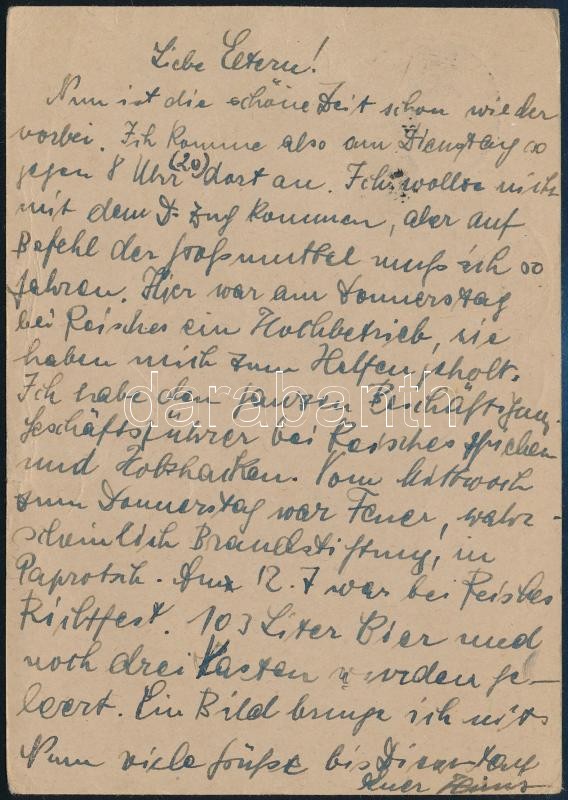 Liebe Eltern!
Nun ist die schöne Zeit schon wieder
vorbei. Ich komme also am Dienstag so
gegen 8 Uhr (20) dort an. Ich wollte nicht
mit dem D-Zug kommen, aber auf
Befehl der Großmuttel muß ich so
fahren. Hier war am Donnerstag
bei Reisches ein Hochbetrieb, sie
haben mich zum Helfen geholt.
Ich habe den ganzen
Geschäftsführer bei Reisches
und Holzhacken. Vom Mittwoch
zum Donnerstag war Feuer, wahr-
scheinlich Brandstiftung, in
Paprotsch. Am 12. 7 war bei Reisches
Richtfest. 103 Liter Bier und
noch drei Kasten wurden ge-
leert. Ein Bild bringe ich mit.
Nun viele Grüße bis Dienstag
Euer
darabanth